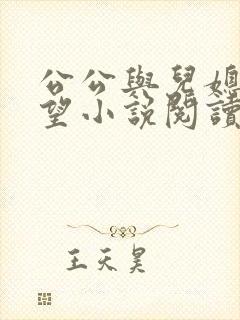 公公與兒媳
望小說閱讀
王天昊